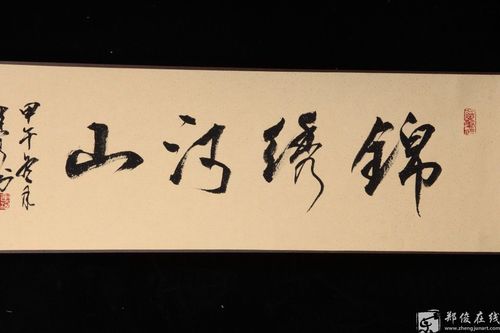 锦绣河山
甲午冬月
郑俊在线
www.zhengjunart.com